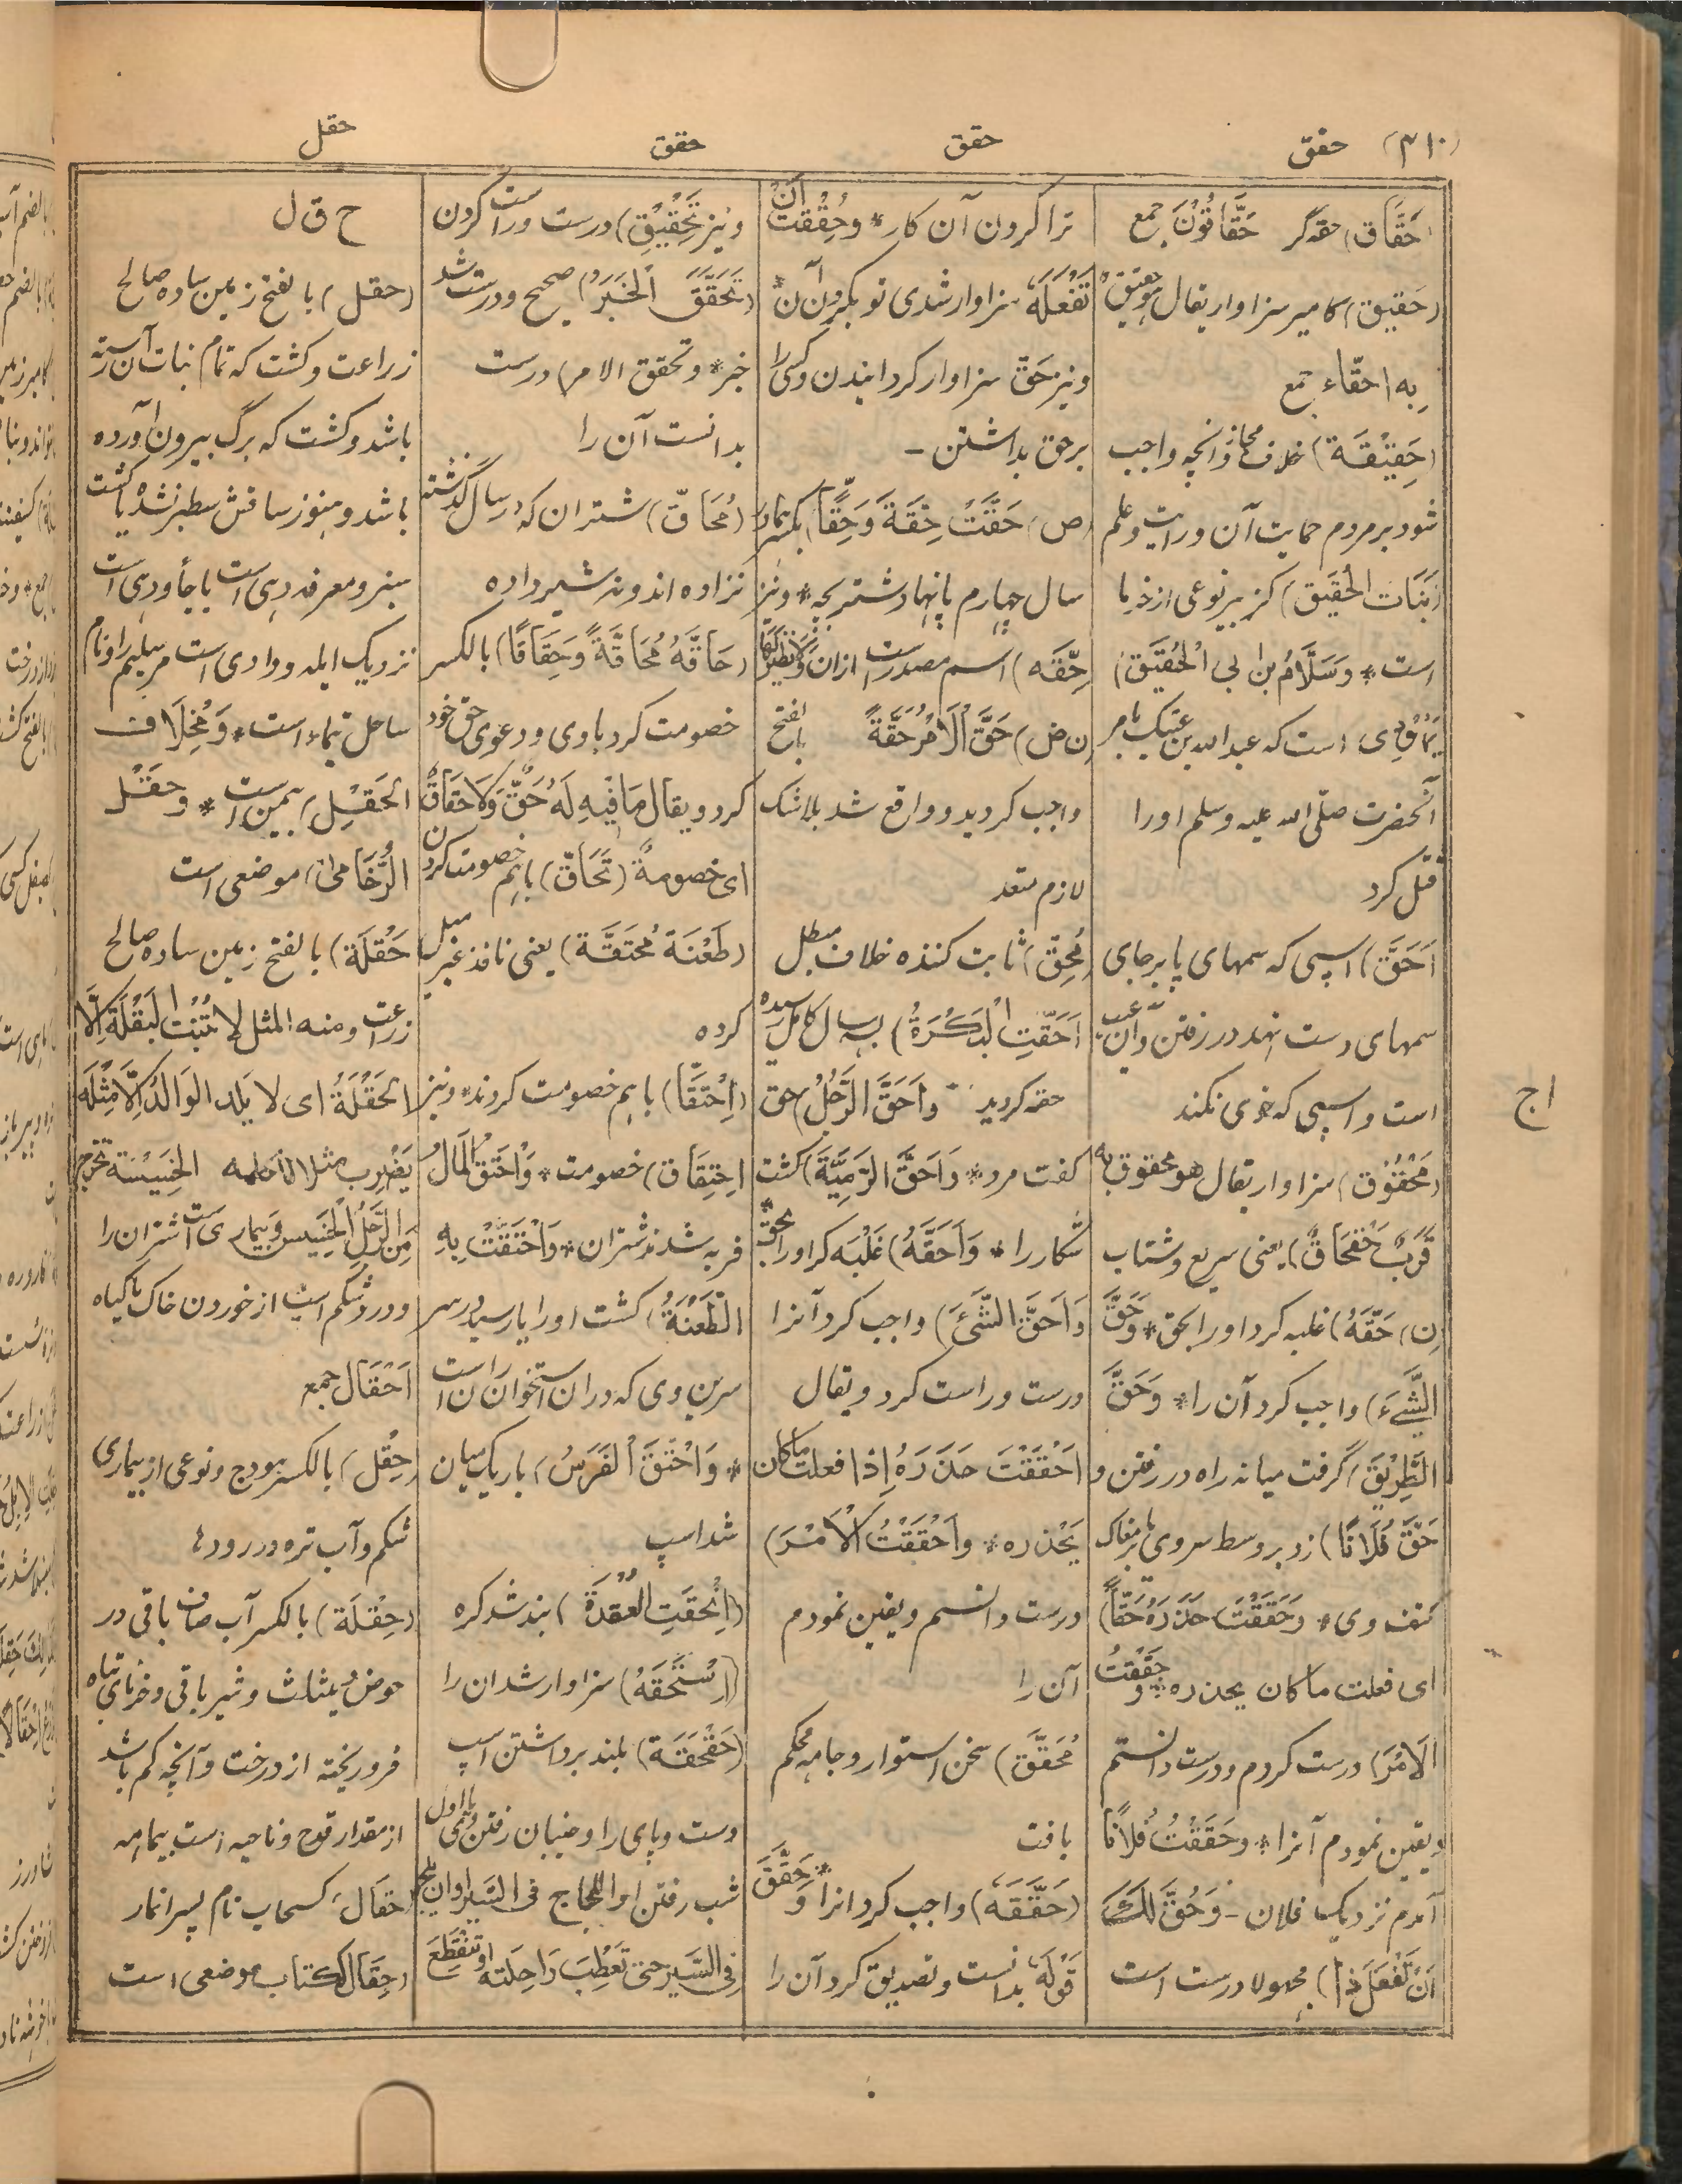 (۳۱۰) حقق
حقق
حقق
حقل
(حَقَّاق) حقه گر حَقَّاقُوْنَ جمع
(حَقِیق) کامیر سزاوار یقال هو حقیق
بِه احقّاء جمع
(حَقِیْقَة) خلاف مجاز و آنچه واجب
شود بر مردم حمایت آن و رایت و علم
(بَنَات الحُقَیق) کزبیر نوعی از خرما
است * و سَلَّامُ بن ابی الحُقَیَّق)
یهودی است که عبدالله بن عتیک بامر
آنحضرت صلّی الله علیه وسلم اورا
قتل کرد
(اَحَقّ) اسپی که سمهای پا بر جای
سمهای دست نهد در رفتن و آن عیب
است و اسپی که خوی نکند
(مَحْقُوْق) سزاوار یقال هو محقوق به
قَرَبٌ حَقْحَاقٌ) یعنی سریع و شتاب
(ن) حَقَّهُ) غلبه کرد اورا بحق * وحَقَّ
الشَّیءَ) واجب کرد آن را * وَحَقَّ
الطَّرِیْقَ) گرفت میانه راه در رفتن و
حَقَّ فُلَانًا) زد بر وسط سر وی یا بر مغاک
کتف وی * وَحَقَقْتَ حَذَرَهُ حَقّاً)
ای فعلت ما کان یحذره * و حَقَقْتُ
الَامْرَ) درست کردم و درست دانستم
و یقین نمودم آنرا * و حَقَقْتُ فُلَانًا
آمدم نزدیک فلان - وَحُقَّ لَکَ
اَنْ تَفْعَلَ ذا) مجهولا درست است
ترا کردن آن کار * و حُقِقْتَ اَنْ
تَفْعَلَهُ سزاوار شدی تو بکردن آن *
و نیز حَقّ سزاوار کردانیدن و کسی را
بر حق بداشتن -
(ض) حَقَّتْ حِقَّةً وَحِقّاً بکسرهما در
سال چهارم پا نهاد شتر بچه * و نیز
حِقَّه) اسم مصدر است ازان
(ن ض) حَقَّ اَلَامْرُ حَقَّةً بالفتح
واجب کردید و واقع شد بلا شک
لازم متعد
(مُحِقّ) ثابت کننده خلاف مبطل
(اَحَقَّتِ الْبَکْرَةُ) بسه سال کامل رسیده
حقه کردید * و اَحَقَّ الرَّجُلُ) حق
گفت مرد * وَاَحَقَّ الرَّمِیَّةَ) کشت
شکار را * وَاَحَقَّهُ) غلبه کرد اورا بحق *
وَاَحَقَّ الشَّئَ) واجب کرد آنرا
درست و راست کرد و یقال
اَحْقَقْتَ حَذَرَهُ اِذا فعلت ما کان
یَحْذره * و اَحْقَقْتُ الاَمْرَ)
درست دانستم و یقین نمودم
آن را
(مُحَقَّق) سخن استوار و جامه محکم
بافت
(حَقَّقَهُ) واجب کرد انرا * و حَقَّقَ
قَوْلَهُ بدانست و تصدیق کرد آن را
و نیز تَحْقِیْقِ) درست و راست کردن
(تَحَقَّقَ الْخَبَرُ) صحیح و درست شد
خبر * و تحقق الامر) درست
بدانست آن را
(مُحَاقّ) شتران که در سال گذشته
نزاده اند و نه شیر داده
(حَاقَّهُ مُحَاقَّةً وَحِقَاقًا) بالکسر
خصومت کرد باوی و دعوی حق خود
کرد و یقال مَا فِیهِ لَهُ حَقٌّ وَلَا حِقَاقٌ
ای خصومةٌ (تَحَاقّ) باهم خصومت کردن
(طَعْنَة مُحْتَقَّة) یعنی نافذ غیر میل
کرده
(اِحْتَقَّا) باهم خصومت کردند * و نیز
اِحْتِقَاق) خصومت * وَاحْتَقَّ الْمَالُ
فربه شدند شتران * وَاحْتَقَّتْ بِهِ
الطَّعْنَةُ) کشت اورا یا رسید در سر
سرین وی که دران استخوان ران است
* وَاحْتَقَّ الْفَرَسُ) باریک میان
شد اسپ
(اِنْحَقَّتِ العُقْدَةُ) بند شد کره
(اِسْتَحَقَّهُ) سزاوار شد آن را
(حَقْحَقَة) بلند برداشتن اسپ
دست و پای را و خنبان رفتن و نهی اول
شب رفتن او اللجاج فی السّیر او ان یلج
فی السَّیر حتی تَعْطَبَ رَاحلته او تنقطع
ح ق ل
(حقل) بالفتح زمین ساده صالح
زراعت و کشت که تمام نبات آن رسته
باشد و کشت که برگ بیرون آورده
باشد و هنوز ساقش سطبر نشده یا کشت
سبز و معرفه دهی است باجأ و دهی است
نزدیک ایله و وادی است مر سلیم را و نام
ساحل تیماء است * وَمِخْلَاف
الحَقْلِ) بیمن است * و حَقْل
الرُّخَامیٰ) موضعی است
حَقْلَة) بالفتح زمین ساده صالح
زراعت و منه المثل لا تُنْبِت البَقْلَةَ اِلَّا
الحَقْلَةُ ای لا یَلِد الوَالدُ اِلَّا مِثْلَهُ
یَضْرِب مثلا لِلْکلمه الخَسِیسَة تخرج
مِنَ الرَّجُلِ الْخَسِیس وَ بیماری است اشتران را
و درد شکم است از خوردن خاک با گیاه
اَحْقَال جمع
(حِقْل) بالکسر هودج و نوعی از بیماری
شکم و آب تره در روده
(حِقْلَة) بالکسر آب صاف باقی در
حوض و یثلث و شیر باقی و خرمای تباه
فرو ریخته از درخت و آنچه کم باشد
از مقدار قدح و ناحیه است بیمامه
حَقَال کسحاب نام پسر انمار
(حِقَال) ککتاب موضعی است
اج